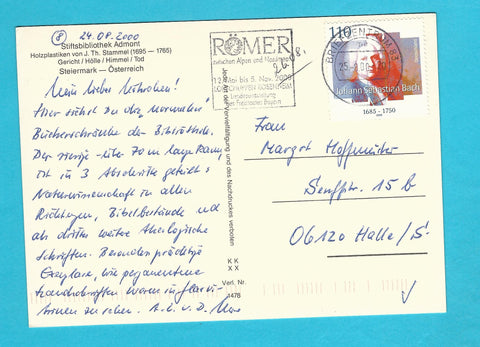 ⑧ 24.08.2000
Stiftsbibliothek Admont
Holzplastiken von J. Th. Stammel (1695 – 1765)
Gericht / Hölle / Himmel / Tod
Steiermark – Österreich
Mein liebes
Hier siehst Du die „normalen"
Bücherschränke der Bibliothek.
Der riesige über 70 m lange Raum
ist in 3 Abschnitte geteilt:
Naturwissenschaft in allen
Richtungen, Bibelbestände und
als drittes weitere theologische
Schriften. Besonders prächtige
Exemplare, wie pergamentene
Handschriften waren in Glasvi-
trinen zu sehen. A. L. v. D.
Jede Art der Vervielfältigung und des Nachdruckes verboten
KK
XX
Verl. Nr.
1478
RÖMER
zwischen Alpen und Nordmeer
12. Mai bis 5. Nov. 2000
LOKSCHUPPEN ROSENHEIM
Landesausstellung
des Freistaates Bayern
26.8.
BRIEFZENTRUM 83
110
Johann Sebastian Bach
1685 – 1750
Frau
Margot Hoffmeister
Senffstr. 15 b
06120 Halle/S.